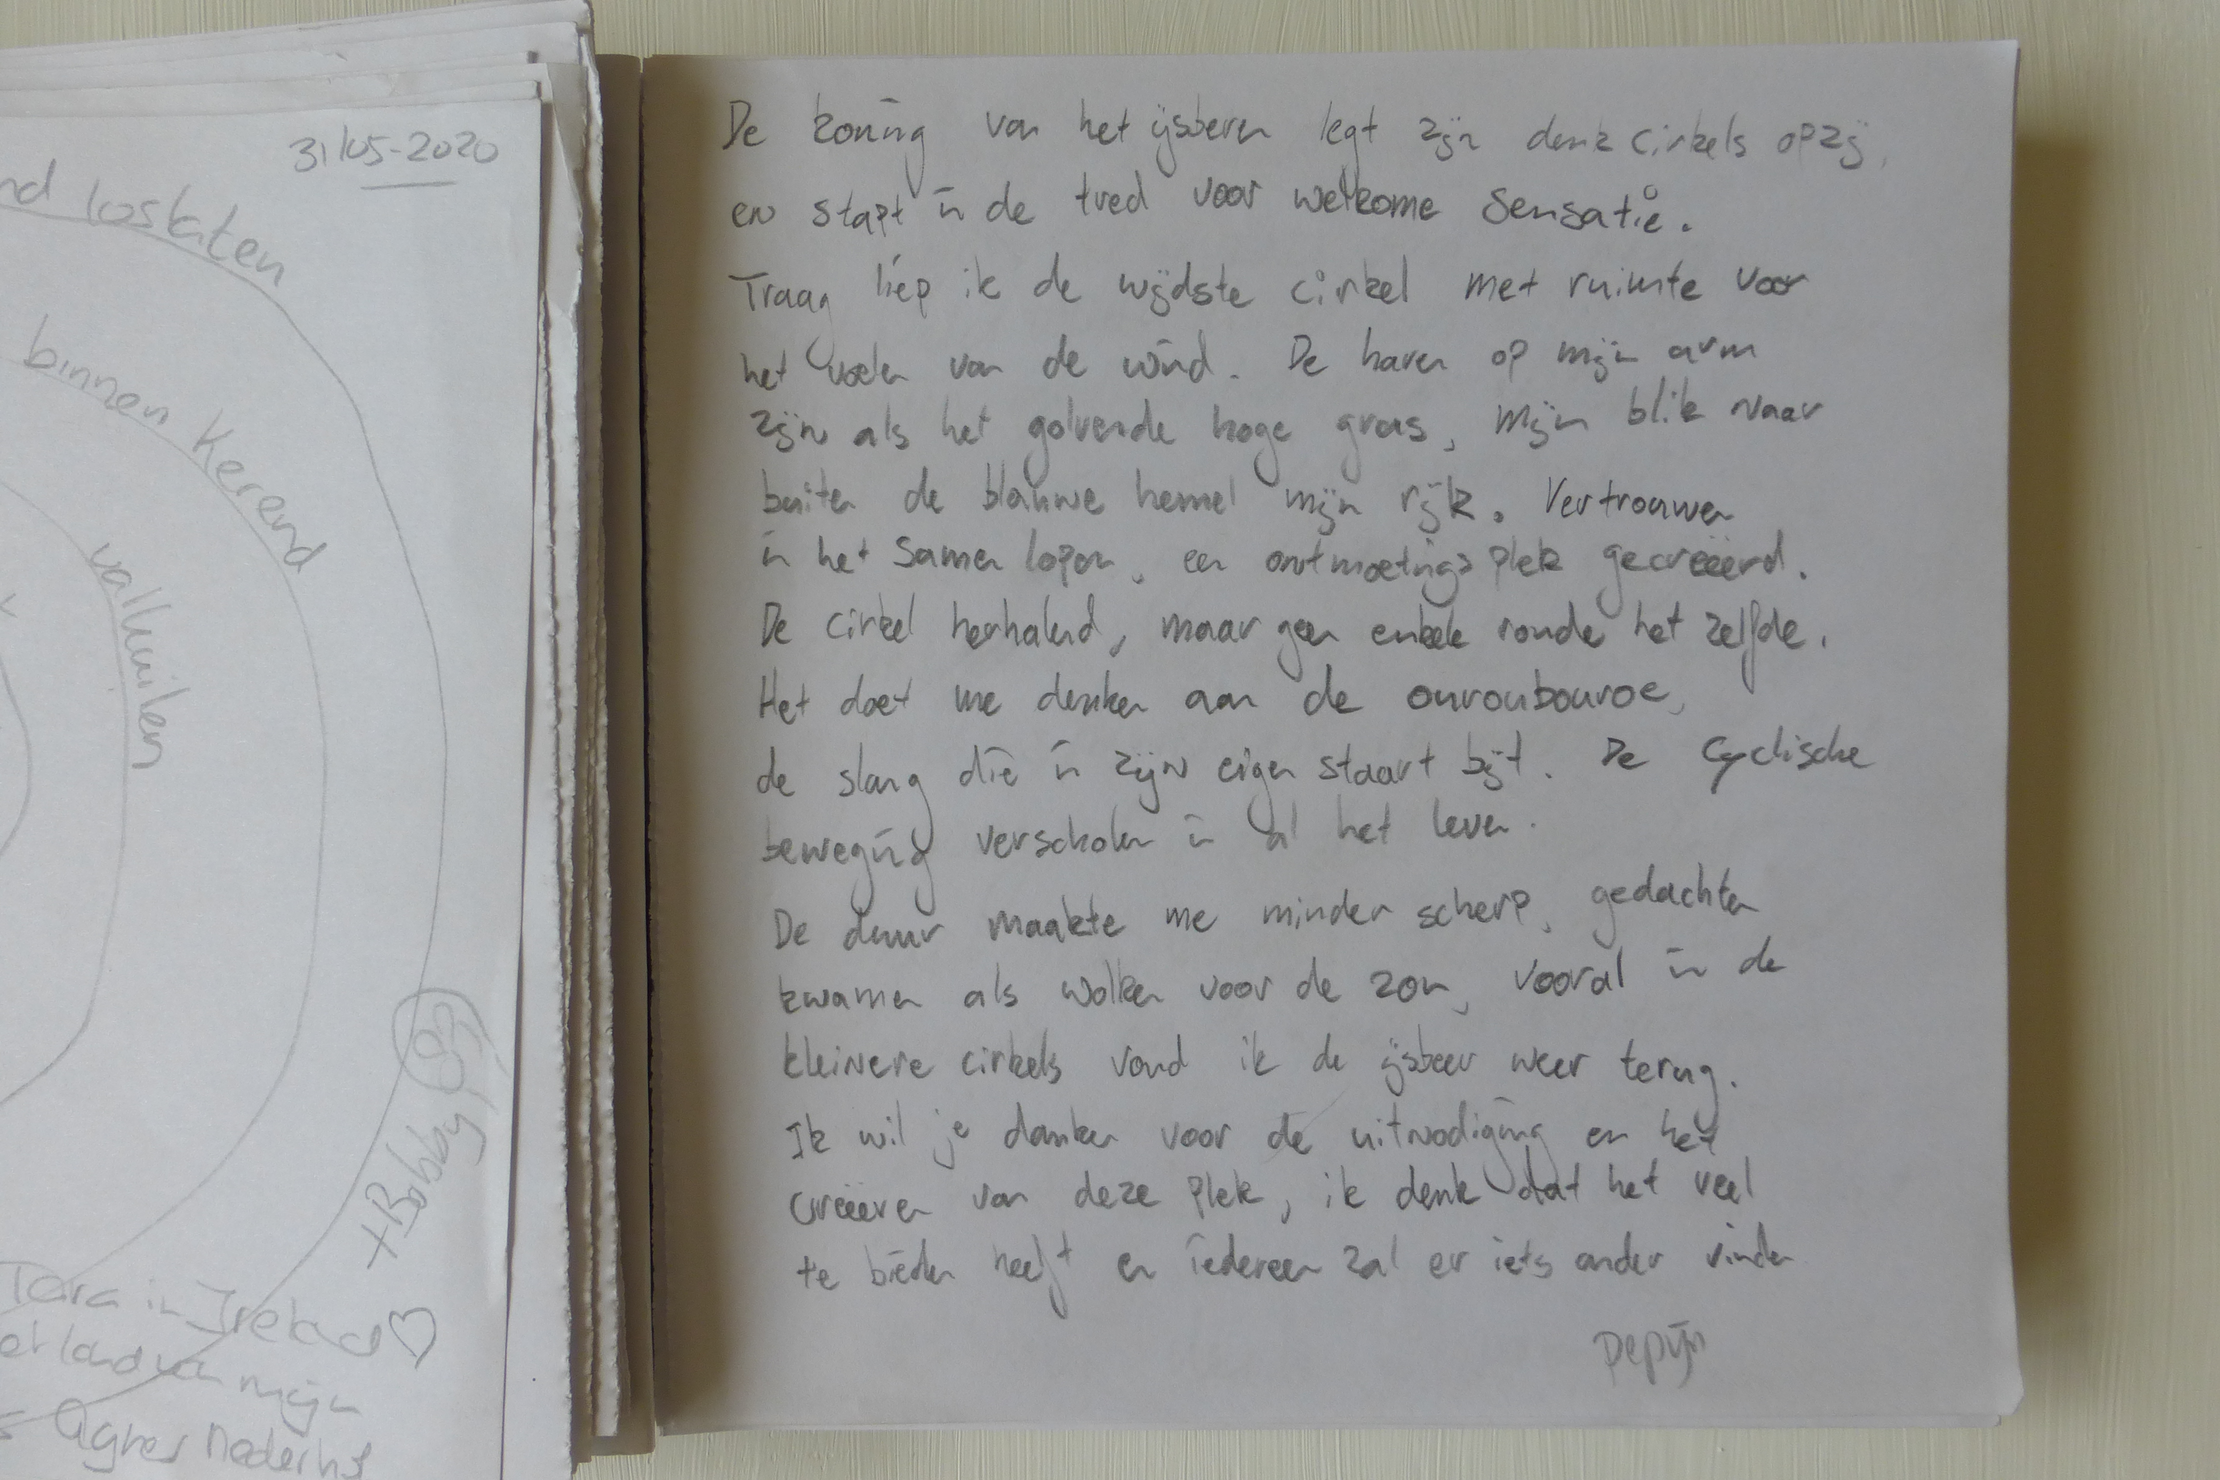 31/05-2020
nd loslaten
binnen Kerend
valkuilen
+Bobby
Tara in Ireland
et land van mijn
= Agnes Nederhof
De koning van het ijsberen legt zijn denk cirkels opzij,
en stapt in de tred voor welkome Sensatie.
Traag liep ik de wijdste cirkel met ruimte voor
het voelen van de wind. De haren op mijn arm
zijn als het golvende hoge gras, mijn blik naar
buiten de blauwe hemel mijn rijk. Vertrouwen
in het samen lopen, een ontmoetings plek gecreëerd.
De cirkel herhalend, maar geen enkele ronde het zelfde.
Het doet me denken aan de ouroubouroe,
de slang die in zijn eigen staart bijt. De Cyclische
beweging verscholen in al het leven.
De duur maakte me minder scherp, gedachten
kwamen als wolken voor de zon, vooral in de
kleinere cirkels vond ik de ijsbeer weer terug.
Ik wil je danken voor de uitnodiging en het
creëeren van deze plek, ik denk dat het veel
te bieden heeft en iedereen zal er iets ander vinden
Pepijn